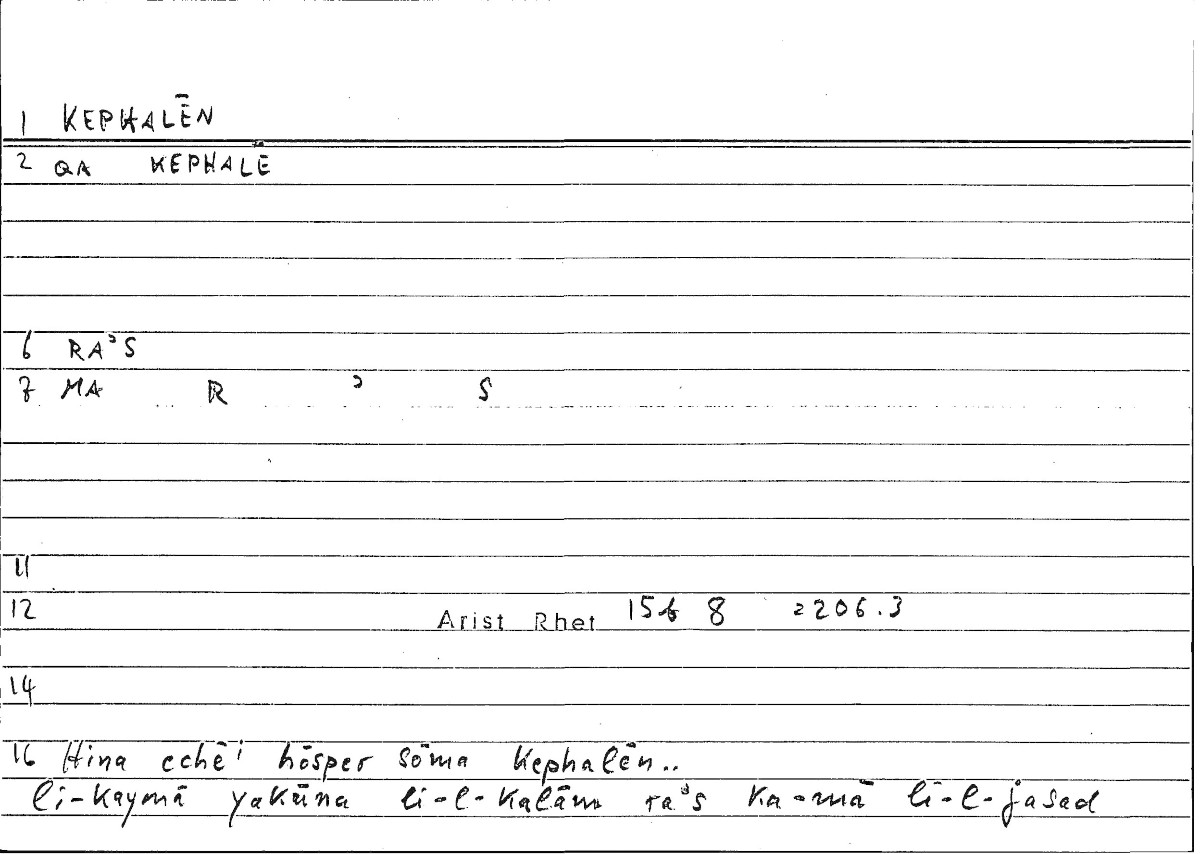 1 KEPHALĒN
2 QA KEPHALĒ
6 RAʾS
7 MA R ʾ S
11
12 Arist Rhet 8 2206.3
14
16 Hina echēⁱ hōsper sōma kephalēn..
li-kaymā yakūna li-l-kalām raʾs ka-mā li-l-jasad